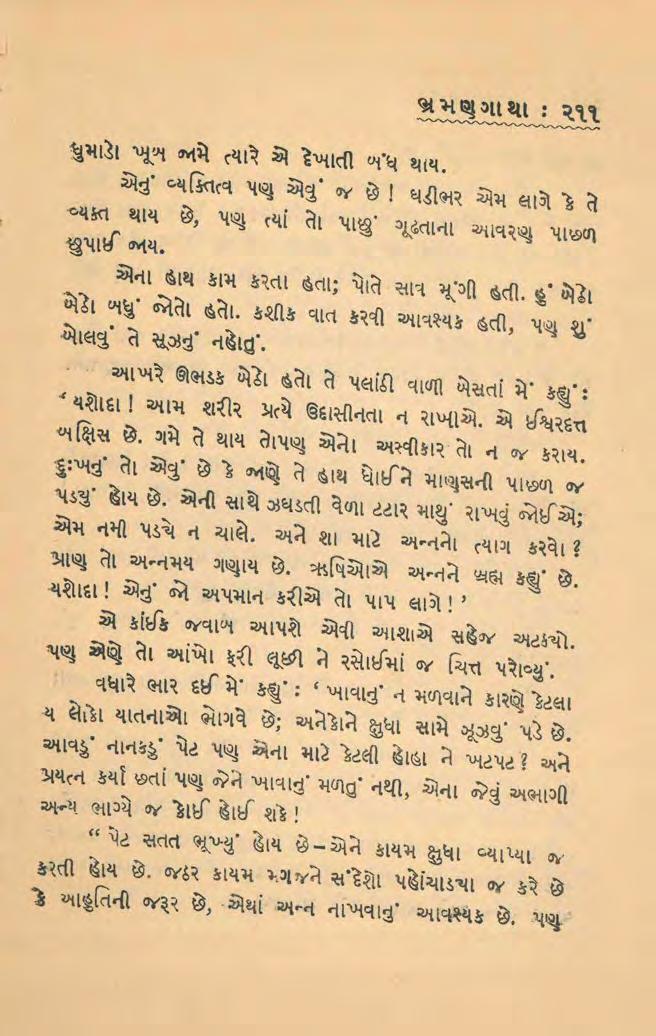 ભ્રમણગાથા : ૨૧૧
ધુમાડો ખૂબ જામે ત્યારે એ દેખાતી બંધ થાય.
એનું વ્યક્તિત્વ પણ એવું જ છે ! ઘડીભર એમ લાગે કે તે
વ્યક્ત થાય છે, પણ ત્યાં તો પાછું ગૂઢતાના આવરણ પાછળ
છુપાઈ જાય.
એના હાથ કામ કરતા હતા; પોતે સાવ મૂંગી હતી. હું બેઠો
બેઠો બધું જોતો હતો. કશીક વાત કરવી આવશ્યક હતી, પણ શું
બોલવું તે સૂઝનું નહોતું.
આખરે ઊભડક બેઠો હતો તે પલાંઠી વાળી બેસતાં મેં કહ્યું :
‘ યશોદા ! આમ શરીર પ્રત્યે ઉદાસીનતા ન રાખીએ. એ ઈશ્વરદત્ત
બક્ષિસ છે. ગમે તે થાય તોપણ એનો અસ્વીકાર તો ન જ કરાય.
દુઃખનું તો એવું છે કે જાણે તે હાથ ધોઈને માણસની પાછળ જ
પડ્યું હોય છે. એની સાથે ઝઘડતી વેળા ટટાર માથું રાખવું જોઈએ;
એમ નમી પડ્યે ન ચાલે. અને શા માટે અન્નનો ત્યાગ કરવો ?
પ્રાણ તો અન્નમય ગણાય છે. ઋષિઓએ અન્નને બ્રહ્મ કહ્યું છે.
યશોદા ! એનું જો અપમાન કરીએ તો પાપ લાગે ! ’
એ કાંઈક જવાબ આપશે એવી આશાએ સહેજ અટક્યો.
પણ એણે તો આંખો ફરી લૂછી ને રસોઈમાં જ ચિત્ત પરોવ્યું.
વધારે ભાર દઈ મેં કહ્યું : ‘ ખાવાનું ન મળવાને કારણે કેટલા
ય લોકો યાતનાઓ ભોગવે છે; અનેકોને ક્ષુધા સામે ઝૂઝવું પડે છે.
આવડું નાનકડું પેટ પણ એના માટે કેટલી હોહા ને ખટપટ ? અને
પ્રયત્ન કર્યા છતાં પણ જેને ખાવાનું મળતું નથી, એના જેવું અભાગી
અન્ય ભાગ્યે જ કોઈ હોઈ શકે !
“ પેટ સતત ભૂખ્યું હોય છે – એને કાયમ ક્ષુધા વ્યાપ્યા જ
કરતી હોય છે. જઠર કાયમ મગજને સંદેશો પહોંચાડ્યા જ કરે છે
કે આહુતિની જરૂર છે, એથાં અન્ન નાખવાનું આવશ્યક છે. પણ